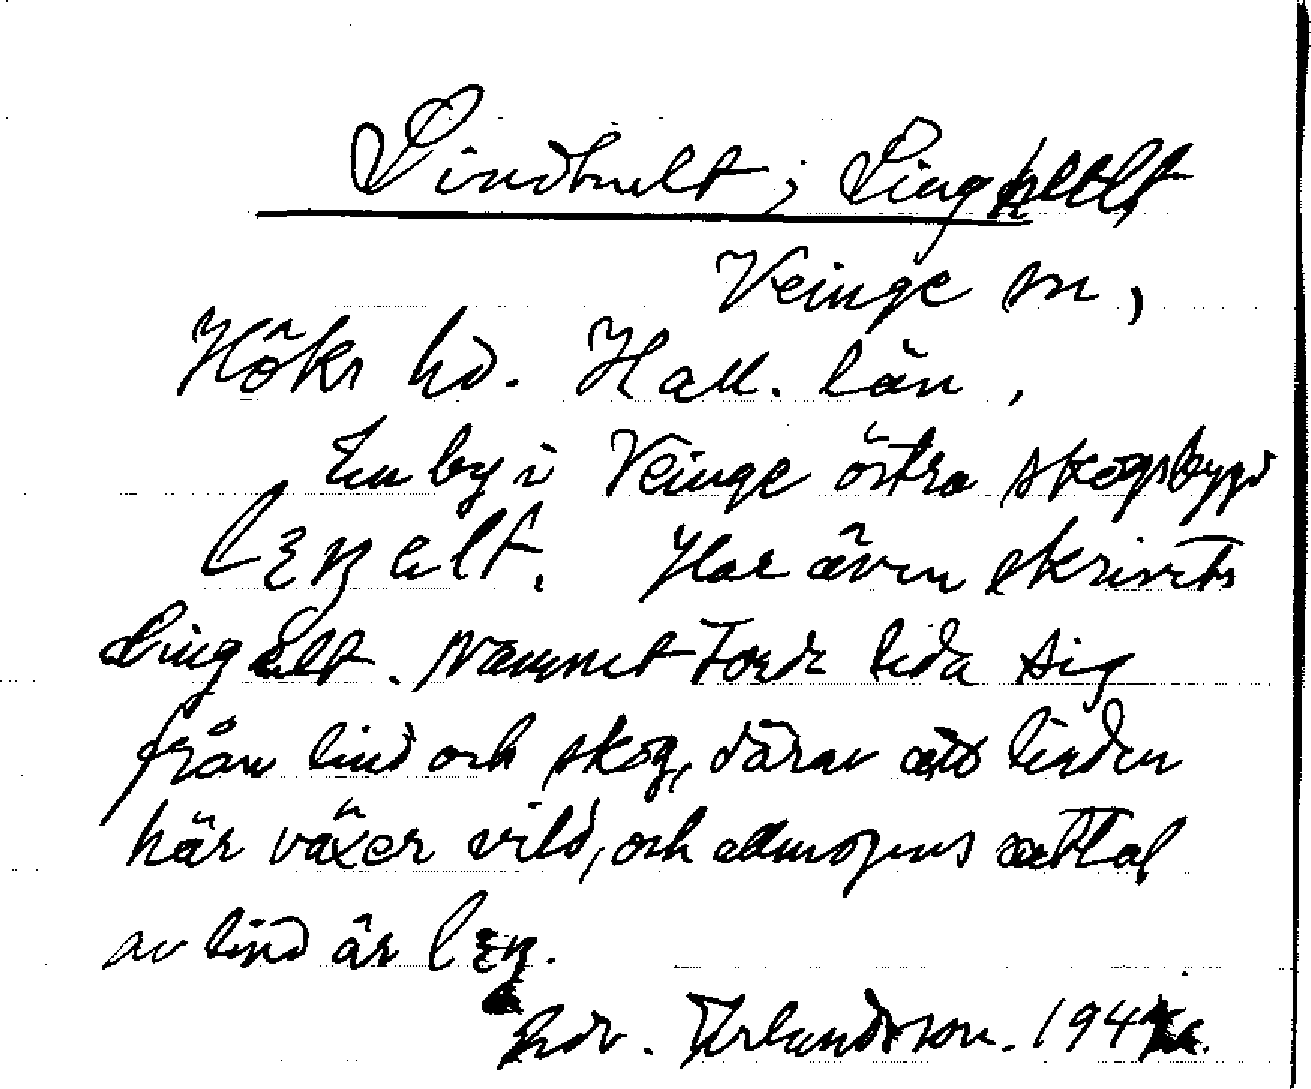 Lindhult; Linghult,
Veinge sn,
Höks hd. Hall. län,
En by i Veinge östra skogsbygd
lɛŋelt. Har även skrivits
Lingelt. Namnet torde leda sig
från lind och skog, därav att linden
här växer vild, och allmogens uttal
av lind är lɛŋ.
Edv. Erlandsson.